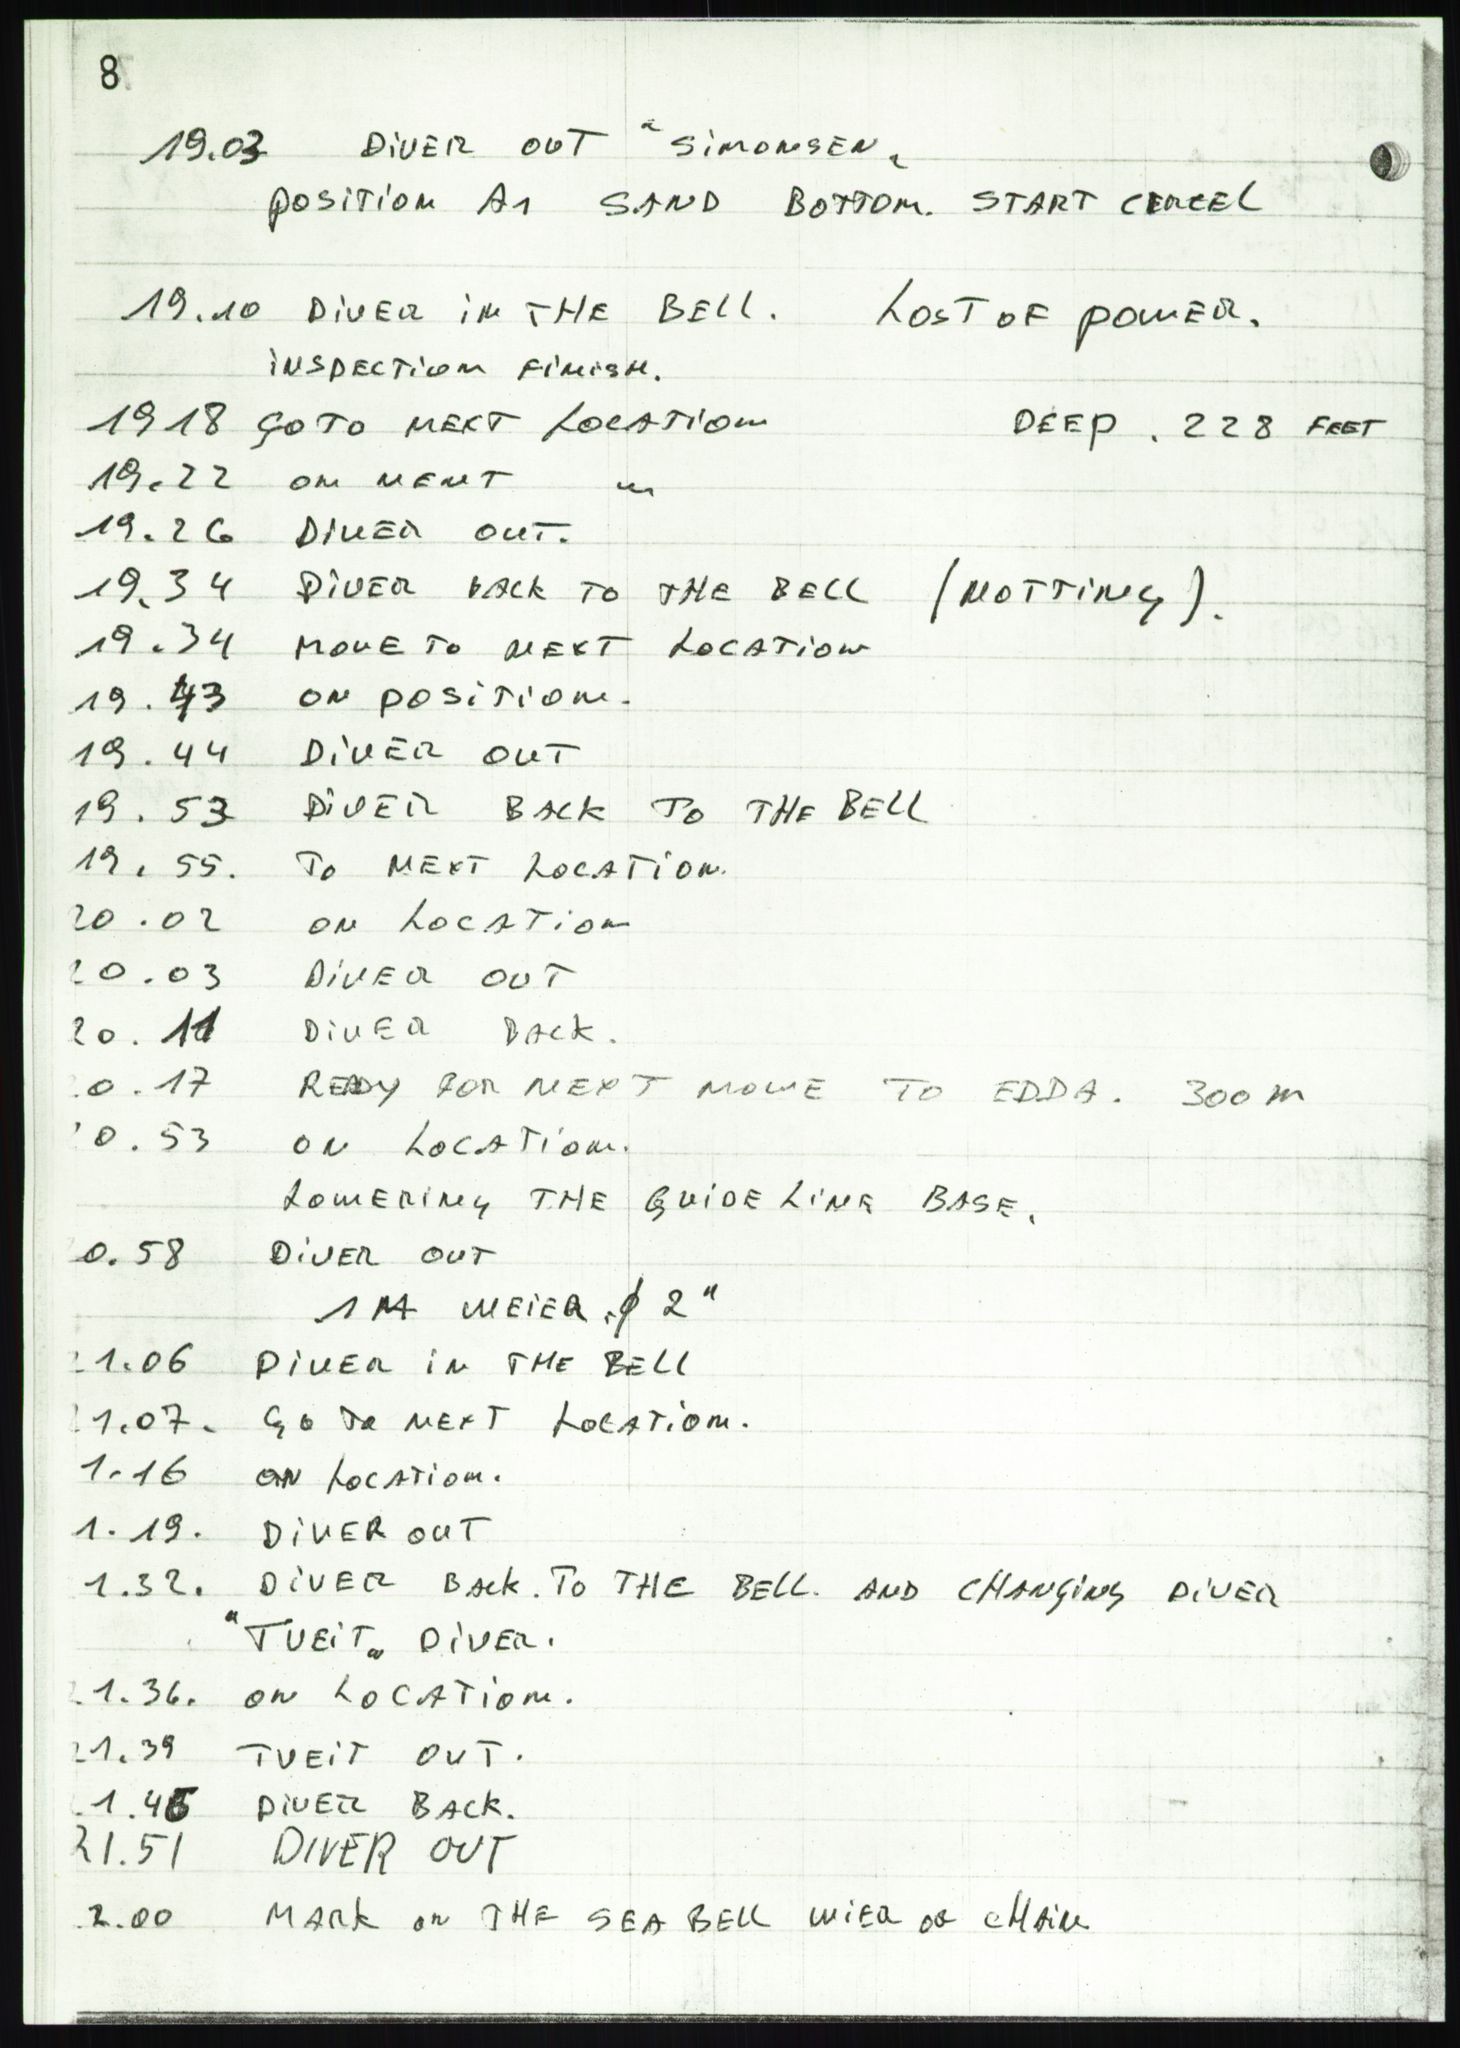 8
19.03 DIVER OUT "SIMONSEN"
POSITION A1 SAND BOTTOM. START CERCEL
19.10 DIVER IN THE BELL. LOST OF POWER.
INSPECTION FINISH.
19 18 GO TO NEXT LOCATION DEEP. 228 FEET
19.22 ON NEXT "
19.26 DIVER OUT.
19.34 DIVER BACK TO THE BELL (NOTTING).
19.34 MOVE TO NEXT LOCATION
19.43 ON POSITION.
19.44 DIVER OUT
19.53 DIVER BACK TO THE BELL
19.55. TO NEXT LOCATION.
20.02 ON LOCATION
20.03 DIVER OUT
20.11 DIVER BACK.
0.17 READY FOR NEXT MOVE TO EDDA. 300 M
0.53 ON LOCATION.
LOWERING THE GUIDE LINE BASE.
0.58 DIVER OUT
1 M WEIER. ∅ 2"
21.06 DIVER IN THE BELL
21.07. GO TO NEXT LOCATION.
1.16 ON LOCATION.
1.19. DIVER OUT
1.32. DIVER BACK. TO THE BELL. AND CHANGING DIVER
"TVEIT" DIVER.
1.36. ON LOCATION.
21.39 TVEIT OUT.
1.45 DIVER BACK.
21.51 DIVER OUT
2.00 MARK ON THE SEA BELL WIER OR CHAIN